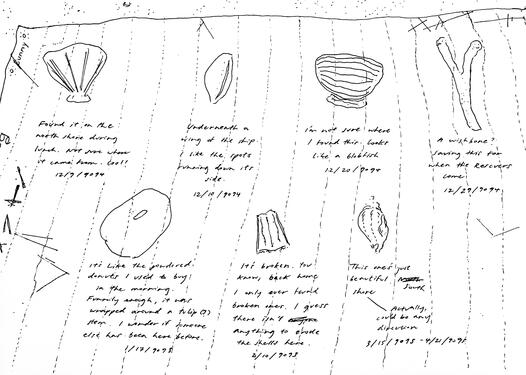 Bunny
Found it on the
north shore during
lunch. Not sure where
it came from. Cool!
12/9/9094
Underneath a
wing of the ship
I like the spots
running down its
side.
12/10/9094
I'm not sure where
I found this. Looks
like a blobfish
12/20/9094
A wishbone?
Saving this for
when the rescuers
come.
12/29/9094
It's like the powdered
donuts I used to buy
in the morning.
Funnily enough, it was
wrapped around a tulip(?)
stem. I wonder if someone
else has been here before.
1/17/9095
It's broken. You
know, back home
I only ever found
broken ones. I guess
there isn't
anything to erode
the shells here.
2/10/9095
This one's just
beautiful
South
shore
Actually,
could be any
direction
3/15/9095 - 4/21/9095